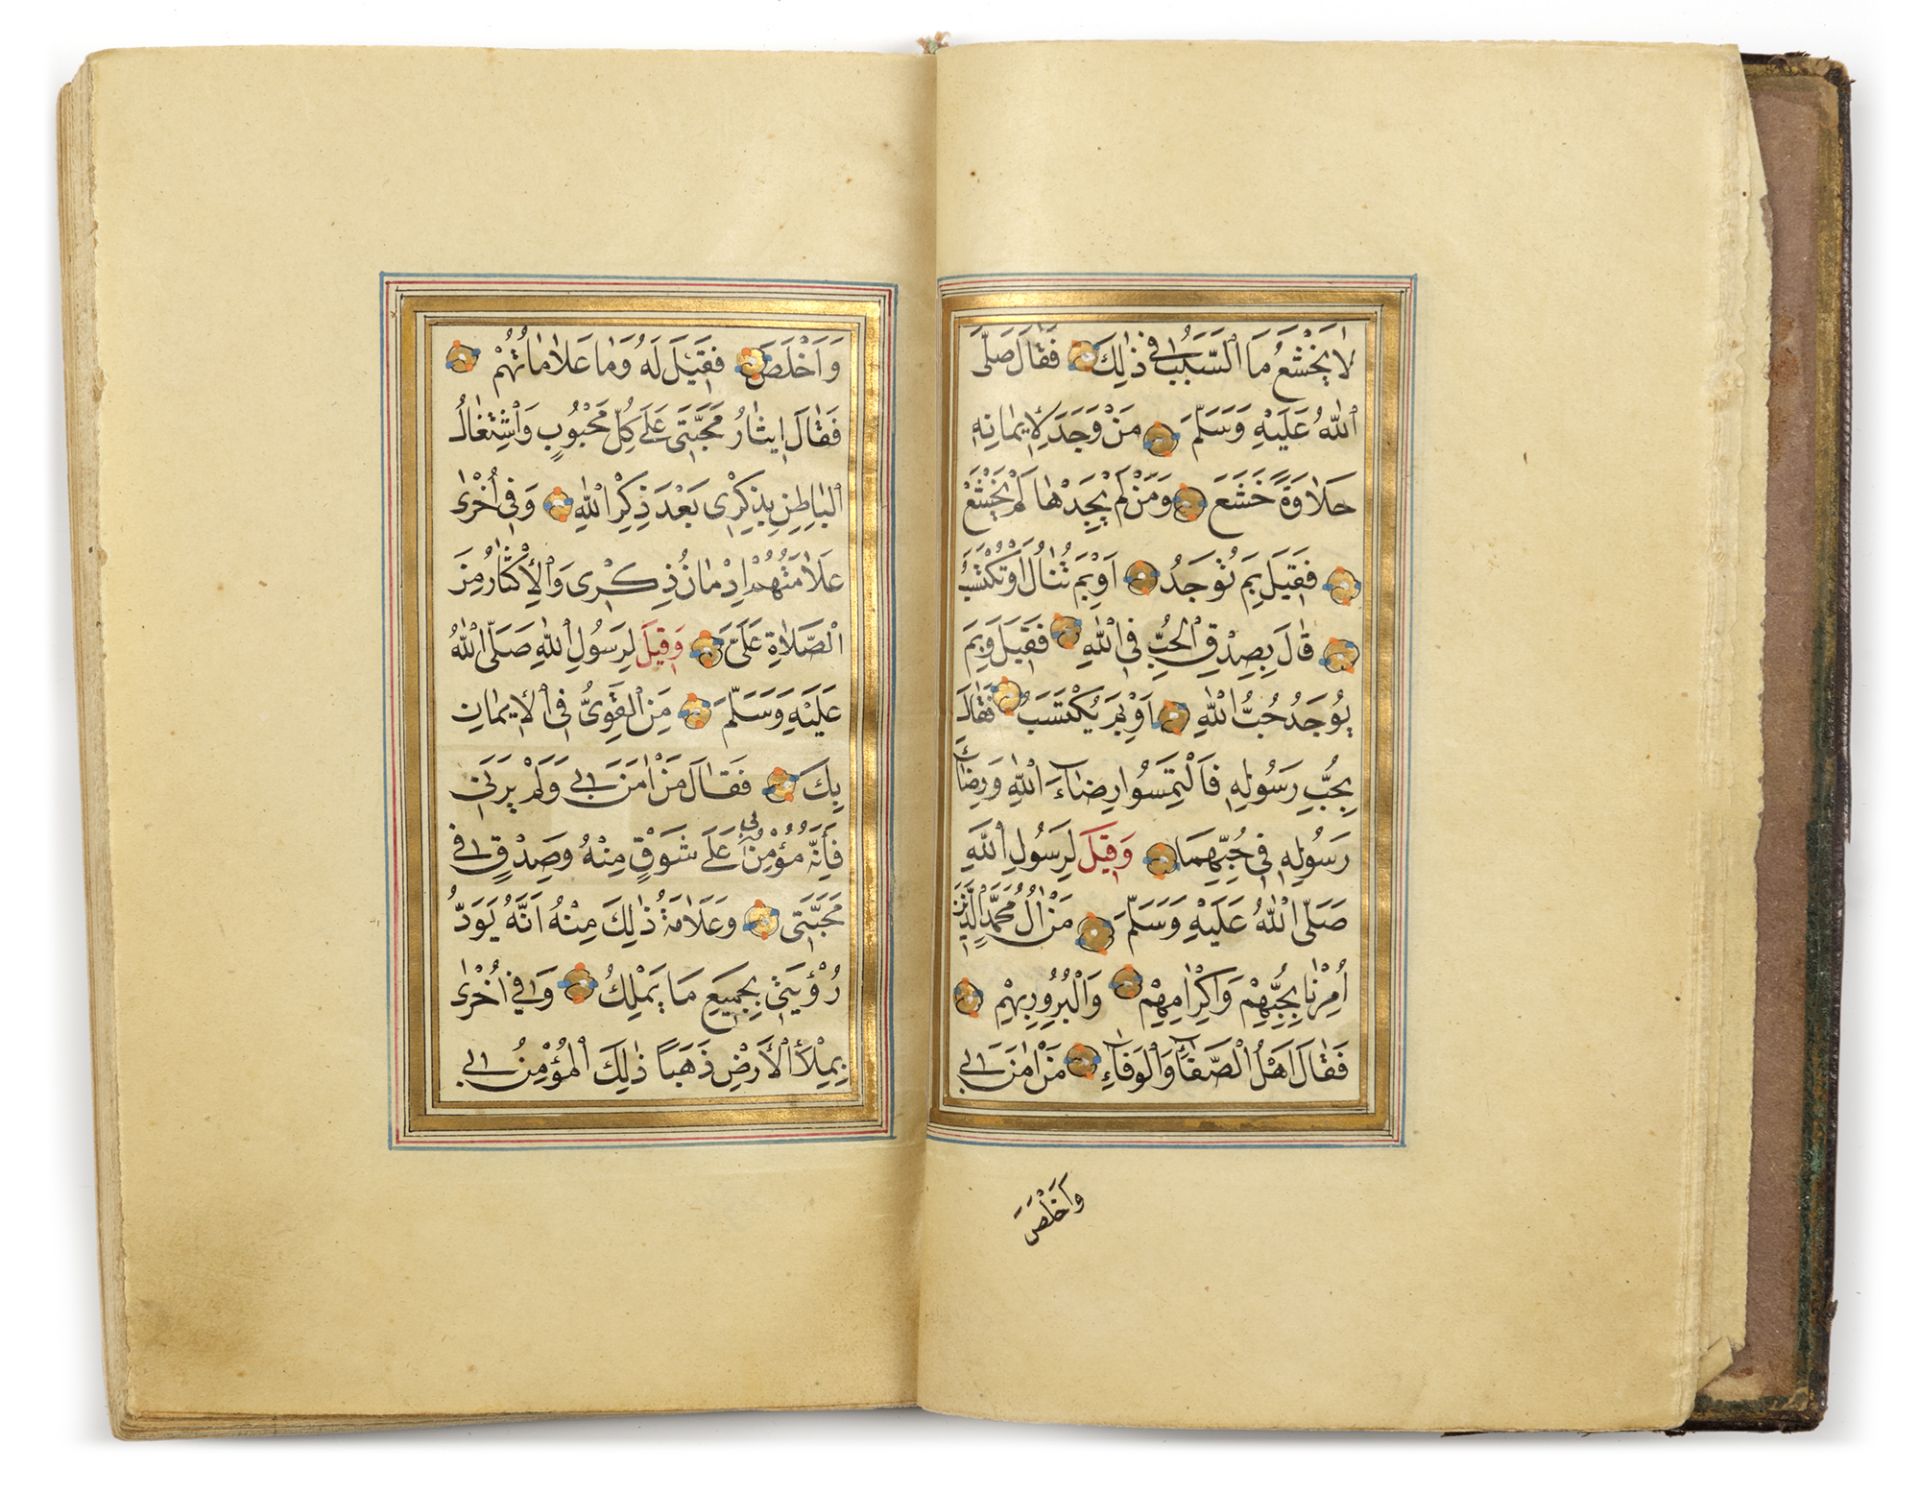 لَا يَخْشَعُ مَا السَّبَبُ فِي ذٰلِكَ فَقَالَ صَلَّى
اللّٰهُ عَلَيْهِ وَسَلَّمَ مَنْ وَجَدَ لِإِيمَانِهِ
حَلَاوَةً خَشَعَ وَمَنْ لَمْ يَجِدْهَا لَمْ يَخْشَعْ
فَقِيلَ بِمَ تُوجَدُ اَوْ بِمَ تُنَالُ اَوْ تُكْتَسَبُ
قَالَ بِصِدْقِ الْحُبِّ فِي اللّٰهِ فَقِيلَ وَبِمَ
يُوجَدُ حُبُّ اللّٰهِ اَوْ بِمَ يُكْتَسَبُ فَقَالَ
بِحُبِّ رَسُولِهِ فَالْتَمِسُوا رِضَاءَ اللّٰهِ وَرِضَاءَ
رَسُولِهِ فِي حُبِّهِمَا وَقِيلَ لِرَسُولِ اللّٰهِ
صَلَّى اللّٰهُ عَلَيْهِ وَسَلَّمَ مَنْ اٰلُ مُحَمَّدٍ الَّذِينَ
اُمِرْنَا بِحُبِّهِمْ وَاِكْرَامِهِمْ وَالْبُرُورِ بِهِمْ
فَقَالَ اَهْلُ الصَّفَاءِ وَالْوَفَاءِ مَنْ اٰمَنَ بِي
وَاَخْلَصَ
وَاَخْلَصَ فَقِيلَ لَهُ وَمَا عَلَامَاتُهُمْ
فَقَالَ اِيثَارُ مَحَبَّتِي عَلَى كُلِّ مَحْبُوبٍ وَاشْتِغَالُ
الْبَاطِنِ بِذِكْرِي بَعْدَ ذِكْرِ اللّٰهِ وَفِي اُخْرٰى
عَلَامَتُهُمْ اِدْمَانُ ذِكْرِي وَالْاِكْثَارُ مِنَ
الصَّلَاةِ عَلَيَّ وَقِيلَ لِرَسُولِ اللّٰهِ صَلَّى اللّٰهُ
عَلَيْهِ وَسَلَّمَ مَنِ الْقَوِيُّ فِي الْاِيمَانِ
بِكَ فَقَالَ مَنْ اٰمَنَ بِي وَلَمْ يَرَنِي
فَاِنَّهُ مُؤْمِنٌ بِي عَلَى شَوْقٍ مِنْهُ وَصِدْقٍ فِي
مَحَبَّتِي وَعَلَامَةُ ذٰلِكَ مِنْهُ اَنَّهُ يَوَدُّ
رُؤْيَتِي بِجَمِيعِ مَا يَمْلِكُ وَفِي اُخْرٰى
بِمِلْأِ الْاَرْضِ ذَهَبًا ذٰلِكَ الْمُؤْمِنُ بِي